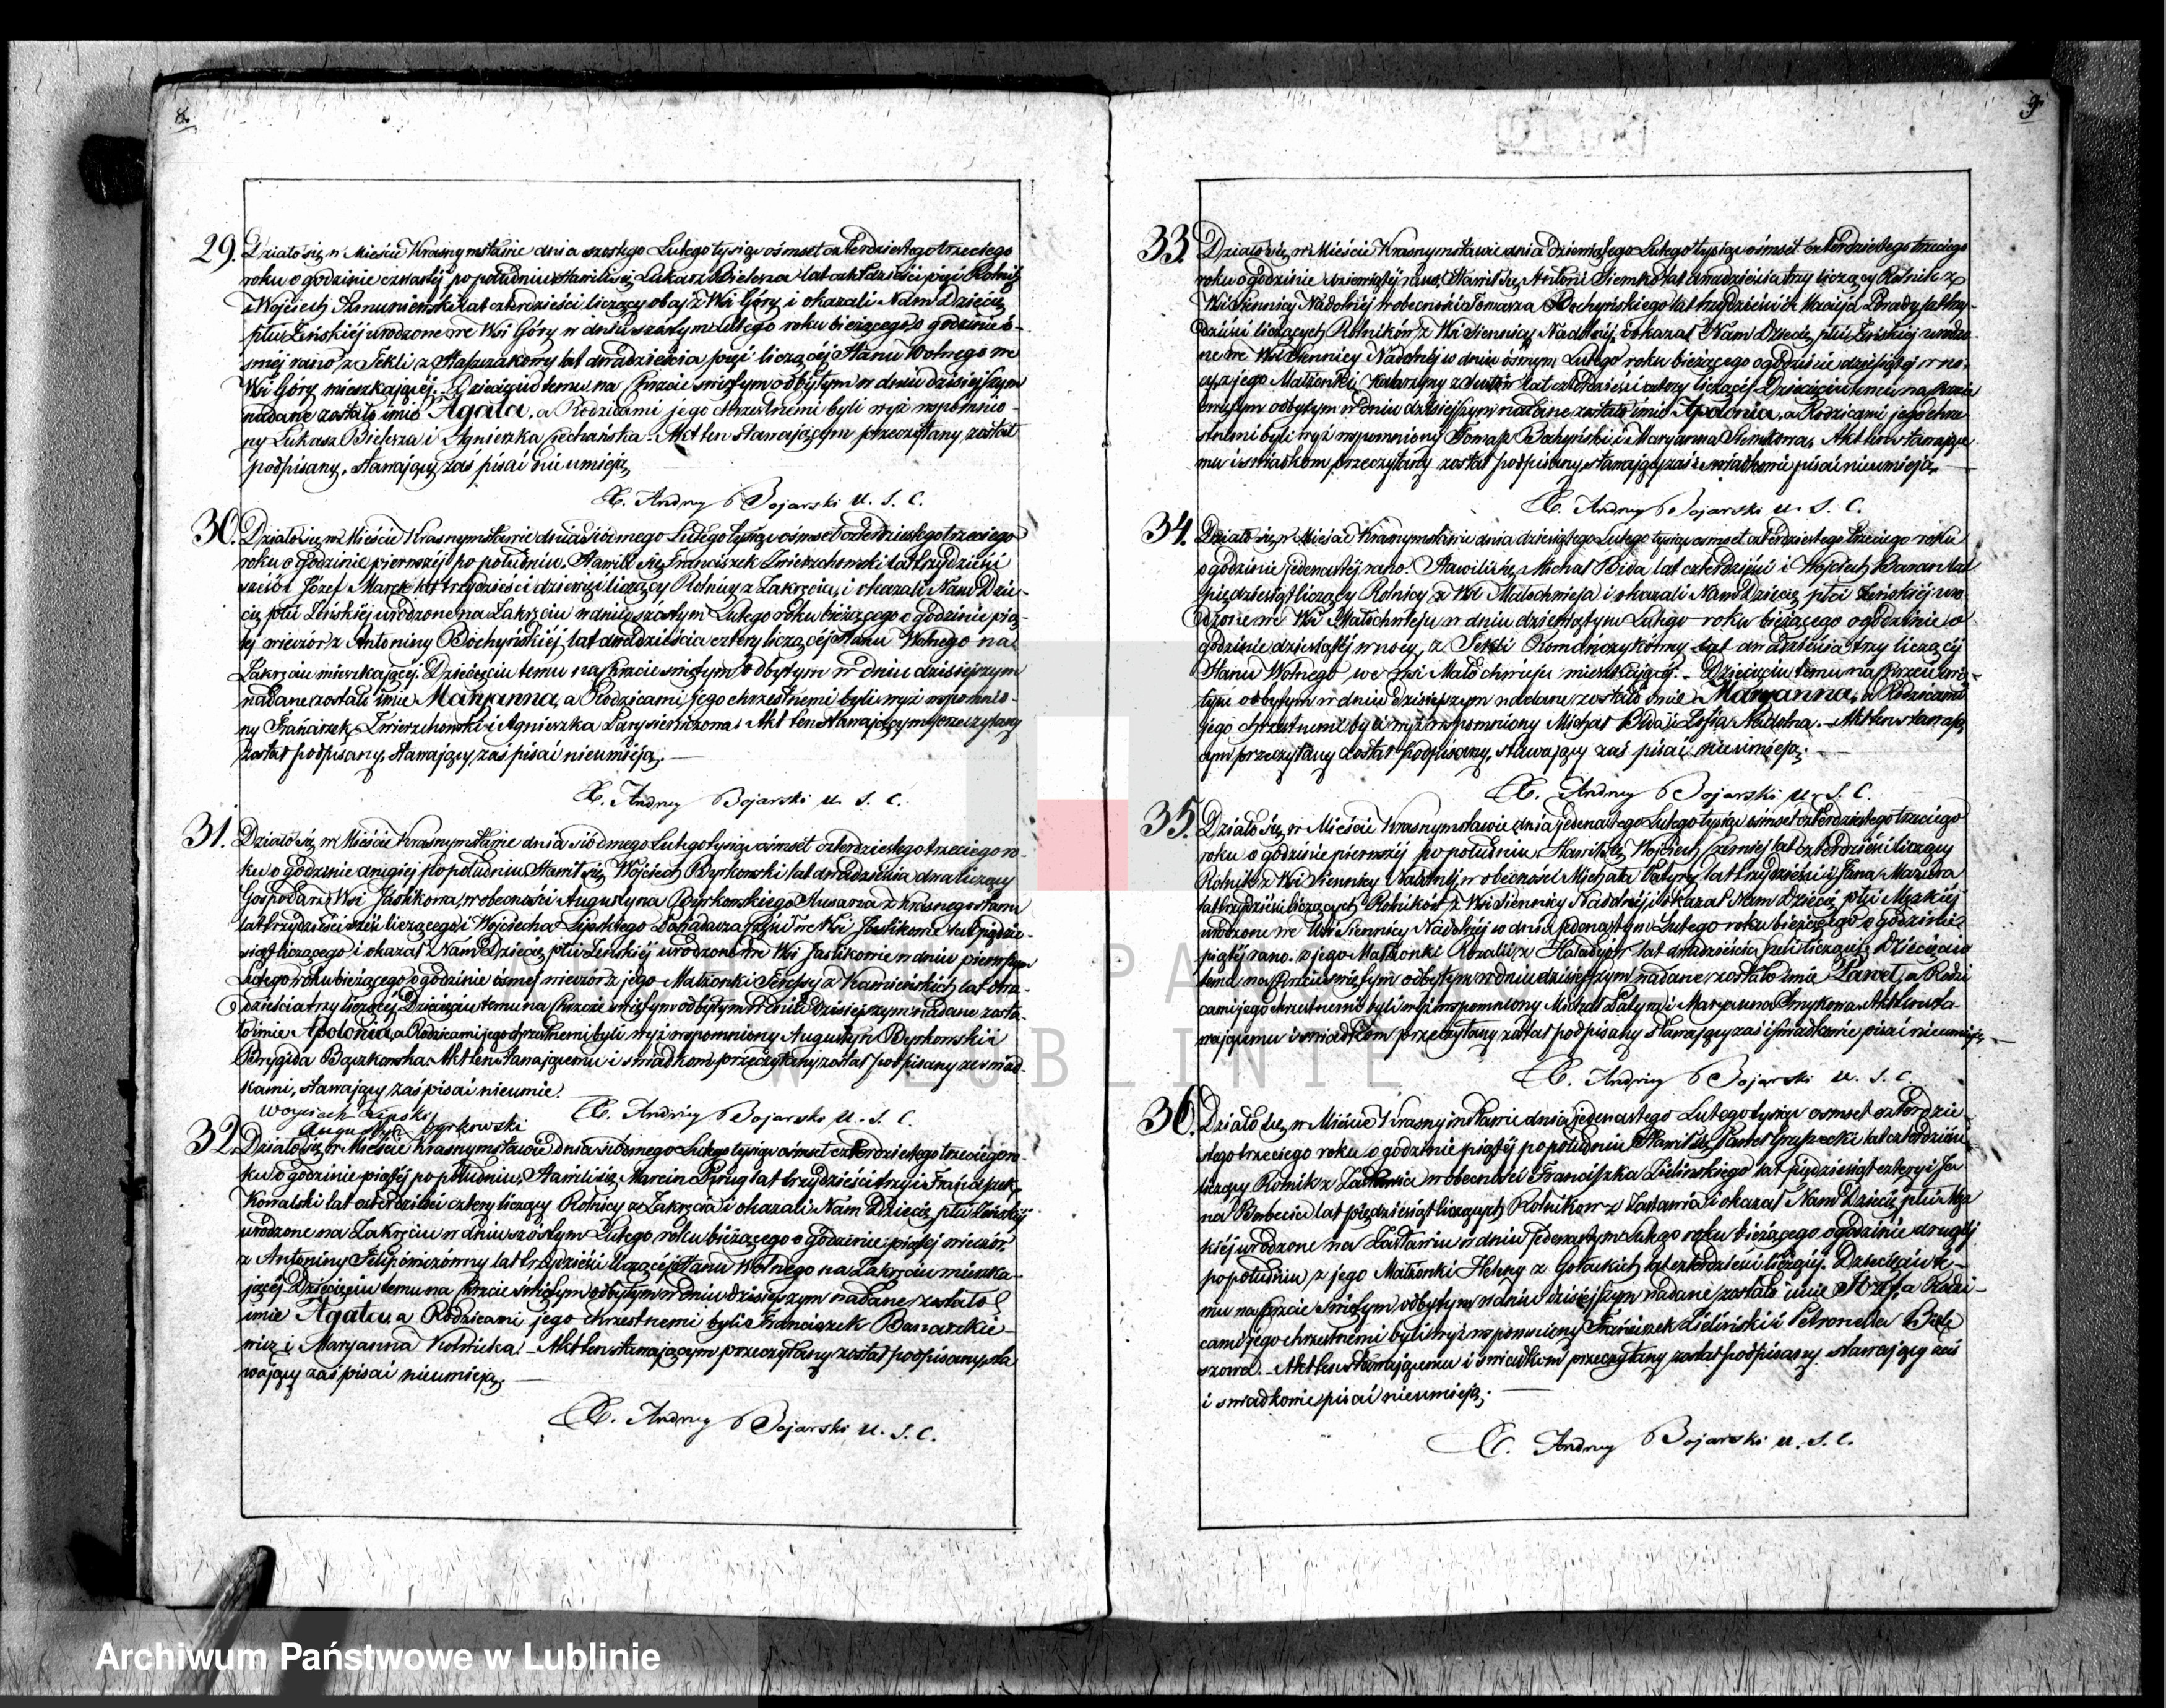 8.
29. Działo się w Mieście Krasnymstawie dnia szóstego Lutego tysiąc ośmset czterdziestego trzeciego
roku o godzinie czwartej po południu Stawili się Łukasz Bielesza lat czterdzieści pięć Rolnik
i Wojciech lat czterdzieści liczący obaj z Wsi Góry i okazali Nam Dziecię
płci Żeńskiej urodzone we Wsi Góry w dniu szóstym Lutego roku bieżącego o godzinie ó-
smej rano, z Tekli z lat dwadzieścia pięć liczącej Stanu Wolnego we
Wsi Góry mieszkającej. Dziecięciu temu na Chrzcie świętym odbytym w dniu dzisiejszym
nadane zostało imie Agata, a Rodzicami jego chrzestnemi byli wyż wspomnio-
ny Łukasz Bielesza i Agnieszka Ciechańska. Akt ten stawającym przeczytany został
podpisany, stawający zaś pisać nieumieją
X. Andrzy Bojarski U. S. C.
30. Działo się w Mieście Krasnymstawie dnia siódmego Lutego tysiąc ośmset czterdziestego trzeciego
roku o godzinie pierwszej po południu. Stawili się Franciszek Zwierzchowski lat trzydzieści
sześć i Józef Marek lat trzydzieści dziewięć liczący Rolnicy z Zakręcia, i okazali Nam Dzie-
cię płci Żeńskiej urodzone na Zakręciu w dniu szóstym Lutego roku bieżącego o godzinie pią-
tej wieczór z Antoniny Bochyńskiej lat dwadzieścia cztery liczącej Stanu Wolnego na
Zakręciu mieszkającej. Dziecięciu temu na Chrzcie świętym odbytym w dniu dzisiejszym
nadane zostało imie Maryanna, a Rodzicami jego chrzestnemi byli wyż wspomnio-
ny Franciszek Zwierzchowski i Agnieszka. Akt ten Stawającym przeczytany
został podpisany, stawający zaś pisać nieumieją.
X. Andrzy Bojarski U. S. C.
31. Działo się w Mieście Krasnymstawie dnia siódmego Lutego tysiąc ośmset czterdziestego trzeciego ro-
ku o godzinie drugiej po południu Stawił się Wojciech Byrkowski lat dwadzieścia dwa liczący
Gospodarz z Wsi Jaślikowa, w obecności Augustyna Byrkowskiego z Krasnegostawu
lat trzydzieści sześć liczącego, i Wojciecha Lipskiego we Wsi Jaślikowie lat pięćdzie-
siąt liczącego i okazał Nam Dziecię płci Żeńskiej urodzone we Wsi Jaślikowie w dniu pierwszym
Lutego roku bieżącego o godzinie ósmej wieczór z jego Małżonki Teressy z Kamieńskich lat dwa-
dzieścia trzy liczącej. Dziecięciu temu na Chrzcie świętym odbytym w dniu dzisiejszym nadane zosta-
ło imie Apolonia, a Rodzicami jego chrzestnemi byli wyż wspomniony Augustyn Byrkowski i
Brygida Bączkowska. Akt ten stawającemu i świadkom przeczytany został podpisany ze świad-
kami, stawający zaś pisać nieumie.
Woyciech Lipski
X. Andrzy Bojarski U. S. C.
Augustyn Byrkowski
32. Działo się w Mieście Krasnymstawie dnia siódmego Lutego tysiąc ośmset czterdziestego trzeciego ro-
ku o godzinie piątej po południu, Stawili się Marcin Pirug lat trzydzieści trzy i Franciszek
Kowalski lat czterdzieści cztery liczący Rolnicy z Zakręcia i okazali Nam Dziecię płci Żeńskiej
urodzone na Zakręciu w dniu szóstym Lutego roku bieżącego o godzinie piątej wieczór
z Antoniny Filipowiczówny lat trzydzieści liczącej Stanu Wolnego na Zakręciu mieszka-
jącej. Dziecięciu temu na Chrzcie świętym odbytym w dniu dzisiejszym nadane zostało
imie Agata, a Rodzicami jego chrzestnemi byli Franciszek Banaszkie-
wicz i Maryanna Kotnicka. Akt ten stawającym przeczytany został podpisany, sta
wający zaś pisać nieumieją.
X. Andrzy Bojarski U. S. C.
9.
33. Działo się w Mieście Krasnymstawie dnia dziewiątego Lutego tysiąc ośmset czterdziestego trzeciego
roku o godzinie dziewiątej rano, Stawił się Antoni Siemko lat dwadzieścia trzy liczący Rolnik z
Wsi Siennicy Nadolnej w obecności Tomasza Bochyńskiego lat trzydzieści i Macieja lat trzy-
dzieści liczących Rolników z Wsi Siennicy Nadolnej, i okazał Nam Dziecię płci Żeńskiej urodzo-
ne we Wsi Siennicy Nadolnej w dniu ósmym Lutego roku bieżącego o godzinie dziesiątej w no-
cy, z jego Małżonki Katarzyny z lat czterdzieści cztery liczącej. Dziecięciu temu na Chrzcie
świętym odbytym w dniu dzisiejszym nadane zostało imie Apolonia, a Rodzicami jego chrze-
stnemi byli wyż wspomniony Tomasz Bochyński i Maryanna Siemkowa, Akt ten stawające-
mu i świadkom przeczytany został podpisany, stawający zaś i świadkowie pisać nieumieją.
X. Andrzy Bojarski U. S. C.
34. Działo się w Mieście Krasnymstawie dnia dziesiątego Lutego tysiąc ośmset czterdziestego trzeciego roku
o godzinie jedenastej rano. Stawili się Michał Bida lat czterdzieści i Wojciech Baran lat
pięćdziesiąt liczący Rolnicy z Wsi Małochwieja i okazali Nam Dziecię płci Żeńskiej uro-
dzone we Wsi Małochwieju w dniu dziewiątym Lutego roku bieżącego o godzinie
godzinie dziesiątej w nocy, z Tekli Romańczykówny lat dwadzieścia trzy liczącej
Stanu Wolnego we Wsi Małochwieju mieszkającej. Dziecięciu temu na Chrzcie świę-
tym odbytym w dniu dzisiejszym nadane zostało imie Maryanna, a Rodzicami
jego chrzestnemi byli wyż wspomniony Michał Bida i Zofia Nadolna. Akt ten stawają
cym przeczytany został podpisany, stawający zaś pisać nieumieją.
X. Andrzy Bojarski U. S. C.
35. Działo się w Mieście Krasnymstawie dnia jedenastego Lutego tysiąc ośmset czterdziestego trzeciego
roku o godzinie pierwszej po południu, Stawił się Wojciech lat czterdzieści liczący
Rolnik z Wsi Siennicy Nadolnej, w obecności Michała Łatyry lat trzydzieści i Jana Mazura
lat trzydzieści liczących Rolników z Wsi Siennicy Nadolnej, i okazał Nam Dziecię płci Męskiej
urodzone we Wsi Siennicy Nadolnej w dniu jedenastym Lutego roku bieżącego o godzinie
piątej rano, z jego Małżonki Rozalii z lat dwadzieścia liczącej. Dziecięciu
temu na Chrzcie świętym odbytym w dniu dzisiejszym nadane zostało imie Paweł, a Rodzi
cami jego chrzestnemi byli wyż wspomniony Michał Łatyra i Maryanna. Akt ten sta-
wającemu i świadkom przeczytany został podpisany stawający zaś i świadkowie pisać nieumieją.
X. Andrzy Bojarski U. S. C.
36. Działo się w Mieście Krasnymstawie dnia jedenastego Lutego tysiąc ośmset czterdzie-
stego trzeciego roku o godzinie piątej po południu Stawił się Paweł Gruszecki lat czterdzieści
liczący Rolnik z Zastawia w obecności Franciszka Zielińskiego lat pięćdziesiąt cztery i Ja
na Berbecia lat pięćdziesiąt liczących Rolników z Zastawia i okazał Nam Dziecię płci Męz
kiej urodzone na Zastawiu w dniu jedenastym Lutego roku bieżącego o godzinie drugiej
po południu z jego Małżonki Heleny z Gołackich lat czterdzieści liczącej. Dziecięciu te-
mu na Chrzcie świętym odbytym w dniu dzisiejszym nadane zostało imie Józef, a Rodzi-
cami jego chrzestnemi byli wyż wspomniony Franciszek Zieliński i Petronella
Akt ten stawającemu i świadkom przeczytany został podpisany. stawający zaś
i świadkowie pisać nieumieją.
X. Andrzy Bojarski U. S. C.
W LUBLINIE
Archiwum Państwowe w Lublinie